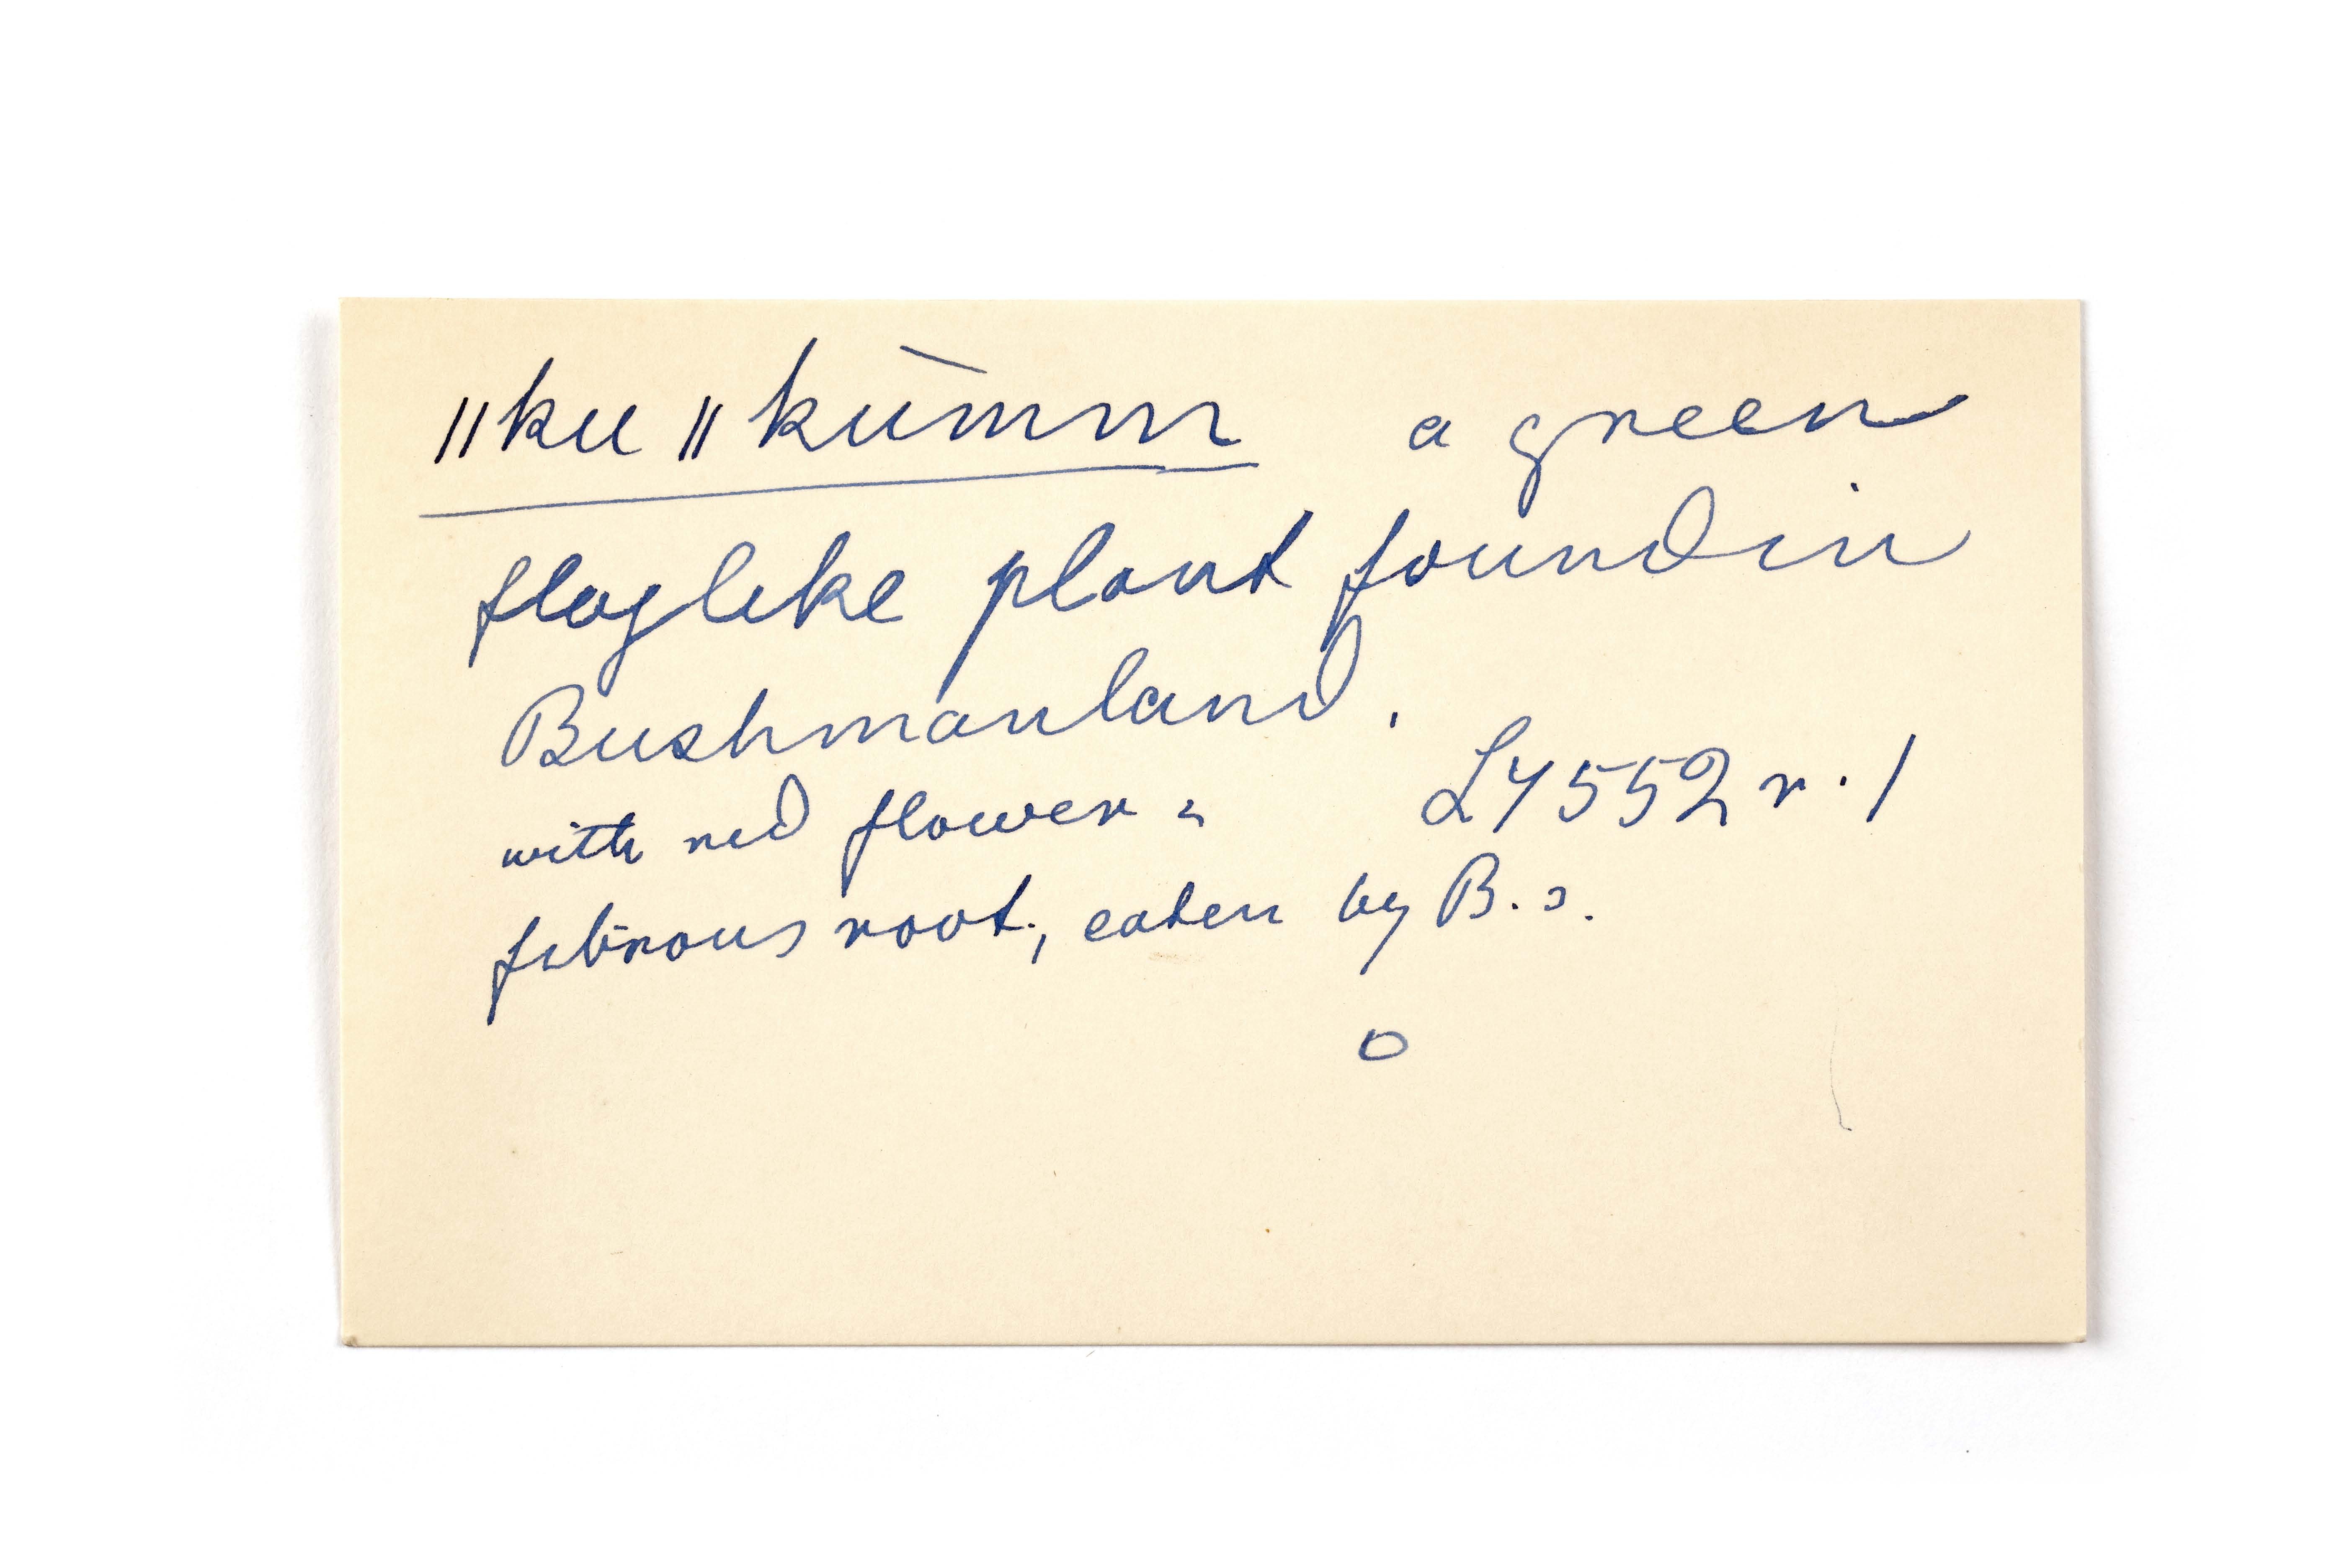 ǁku ǁkùmm a green
flaglike plant found in
Bushmanland.
with red flower & L4552 r./
fibrous root, eaten by B.s.